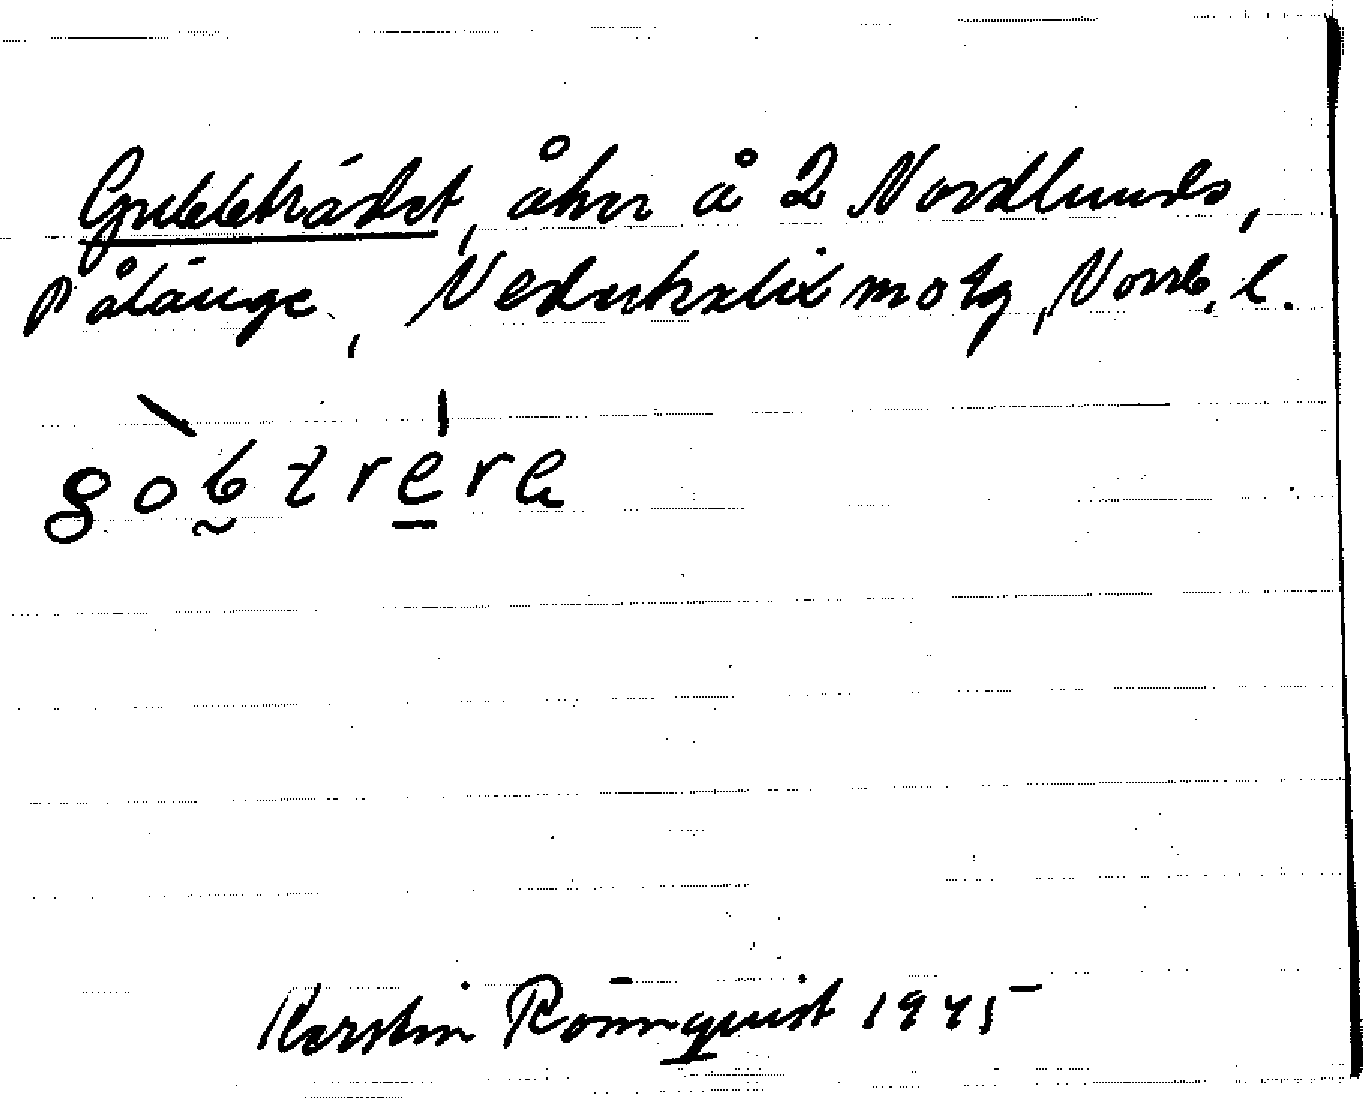 Gubbträdet, åker å 2 Nordlunds,
Pålänge, Nederkalix motg, Norrb. l.
gobtrere
Kerstin Rönnquist 1945